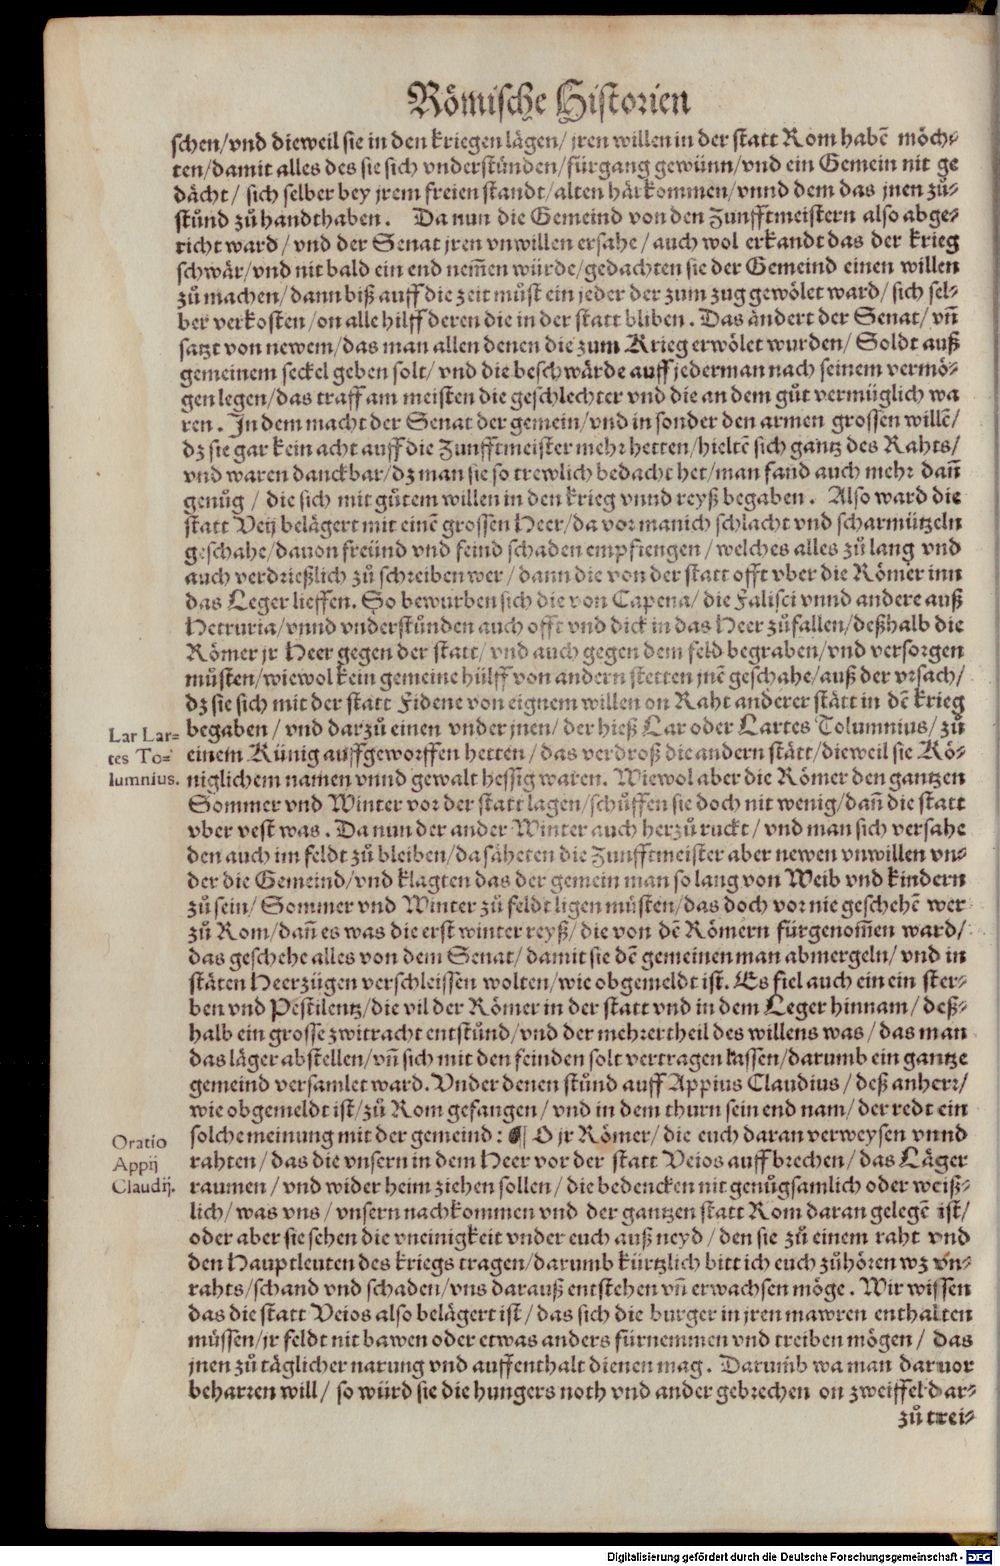 Römische Historien
schen/vnd dieweil sie in den kriegen lägen/ jren willen in der statt Rom habē möch-
ten/damit alles des sie sich vnderstünden/fürgang gewünn/vnd ein Gemein nit ge
dächt/ sich selber bey jrem freien standt/alten härkommen/vnnd dem das jnen zů-
stůnd zů handthaben. Da nun die Gemeind von den Zunfftmeistern also abge-
richt ward/vnd der Senat jren vnwillen ersahe/auch wol erkandt das der krieg
schwär/vnd nit bald ein end nem̄en würde/gedachten sie der Gemeind einen willen
zů machen/dann biß auff die zeit můst ein jeder der zum zug gewölet ward/ sich sel-
ber verkosten/on alle hilff deren die in der statt bliben. Das ändert der Senat/vn̄
satzt von newem/das man allen denen die zum Krieg erwölet wurden/ Soldt auß
gemeinem seckel geben solt/ vnd die beschwärde auff jederman nach seinem vermö-
gen legen/das traff am meisten die geschlechter vnd die an dem gůt vermüglich wa
ren. In dem macht der Senat der gemein/vnd in sonder den armen grossen willē/
dz sie gar kein acht auff die Zunfftmeister mehr hetten/hieltē sich gantz des Rahts/
vnd waren danckbar/dz man sie so trewlich bedacht het/man fand auch mehr dan̄
genůg/ die sich mit gůtem willen in den krieg vnnd reyß begaben. Also ward die
statt Veij belägert mit einē grossen Heer/da vor manich schlacht vnd scharmützeln
geschahe/dauon freünd vnd feind schaden empfiengen/welches alles zů lang vnd
auch verdrießlich zů schreiben wer/dann die von der statt offt vber die Römer inn
das Leger lieffen. So bewurben sich die von Capena/die Falisci vnnd andere auß
Hetruria/vnnd vnderstůnden auch offt vnd dick in das Heer zůfallen/deßhalb die
Römer jr Heer gegen der statt/vnd auch gegen dem feld begraben/vnd versorgen
můsten/wiewol kein gemeine hülff von andern stetten jnē geschahe/auß der vrsach/
dz sie sich mit der statt Fidene von eignem willen on Raht anderer stätt in dē krieg
Lar Lar-
tes To-
lumnius.
begaben/vnd darzů einen vnder jnen/der hieß Lar oder Lartes Tolumnius/zů
einem Künig auffgeworffen hetten/das verdroß die andern stätt/dieweil sie Kö-
niglichem namen vnnd gewalt hessig waren. Wiewol aber die Römer den gantzen
Sommer vnd Winter vor der statt lagen/schůffen sie doch nit wenig/dan̄ die statt
vber vest was. Da nun der ander Winter auch herzů ruckt/vnd man sich versahe
den auch im feldt zů bleiben/da säheten die Zunfftmeister aber newen vnwillen vn-
der die Gemeind/vnd klagten das der gemein man so lang von Weib vnd kindern
zů sein/Sommer vnd Winter zů feldt ligen müsten/das doch vor nie geschehē wer
zů Rom/dan̄ es was die erst winter reyß/die von dē Römern fürgenom̄en ward/
das geschehe alles von dem Senat/damit sie dē gemeinen man abmergeln/vnd in
stäten Heerzügen verschleissen wolten/wie obgemeldt ist. Es fiel auch ein ein ster-
ben vnd Pestilentz/die vil der Römer in der statt vnd in dem Leger hinnam/deß-
halb ein grosse zwitracht entstůnd/vnd der mehrertheil des willens was/das man
das läger abstellen/vn̄ sich mit den feinden solt vertragen lassen/darumb ein gantze
gemeind versamlet ward. Vnder denen stůnd auff Appius Claudius/deß anherr/
wie obgemeldt ist/zů Rom gefangen/vnd in dem thurn sein end nam/der redt ein
Oratio
Appij
Claudij.
solche meinung mit der gemeind: ¶ O jr Römer/die euch daran verweysen vnnd
rahten/das die vnsern in dem Heer vor der statt Veios auffbrechen/das Läger
raumen/vnd wider heim ziehen sollen/die bedencken nit genůgsamlich oder weiß-
lich/was vns/vnsern nachkommen vnd der gantzen statt Rom daran gelegē ist/
oder aber sie sehen die vneinigkeit vnder euch auß neyd/den sie zů einem raht vnd
den Hauptleuten des kriegs tragen/darumb kürtzlich bitt ich euch zůhören wz vn-
rahts/schand vnd schaden/vns darauß entstehen vn̄ erwachsen möge. Wir wissen
das die statt Veios also belägert ist/das sich die burger in jren mawren enthalten
müssen/jr feldt nit bawen oder etwas anders fürnemmen vnd treiben mögen/ das
jnen zů täglicher narung vnd auffenthalt dienen mag. Darumb wa man daruor
beharren will/ so würd sie die hungers noth vnd ander gebrechen on zweiffel dar-
zů trei-
Digitalisierung gefördert durch die Deutsche Forschungsgemeinschaft - DFG